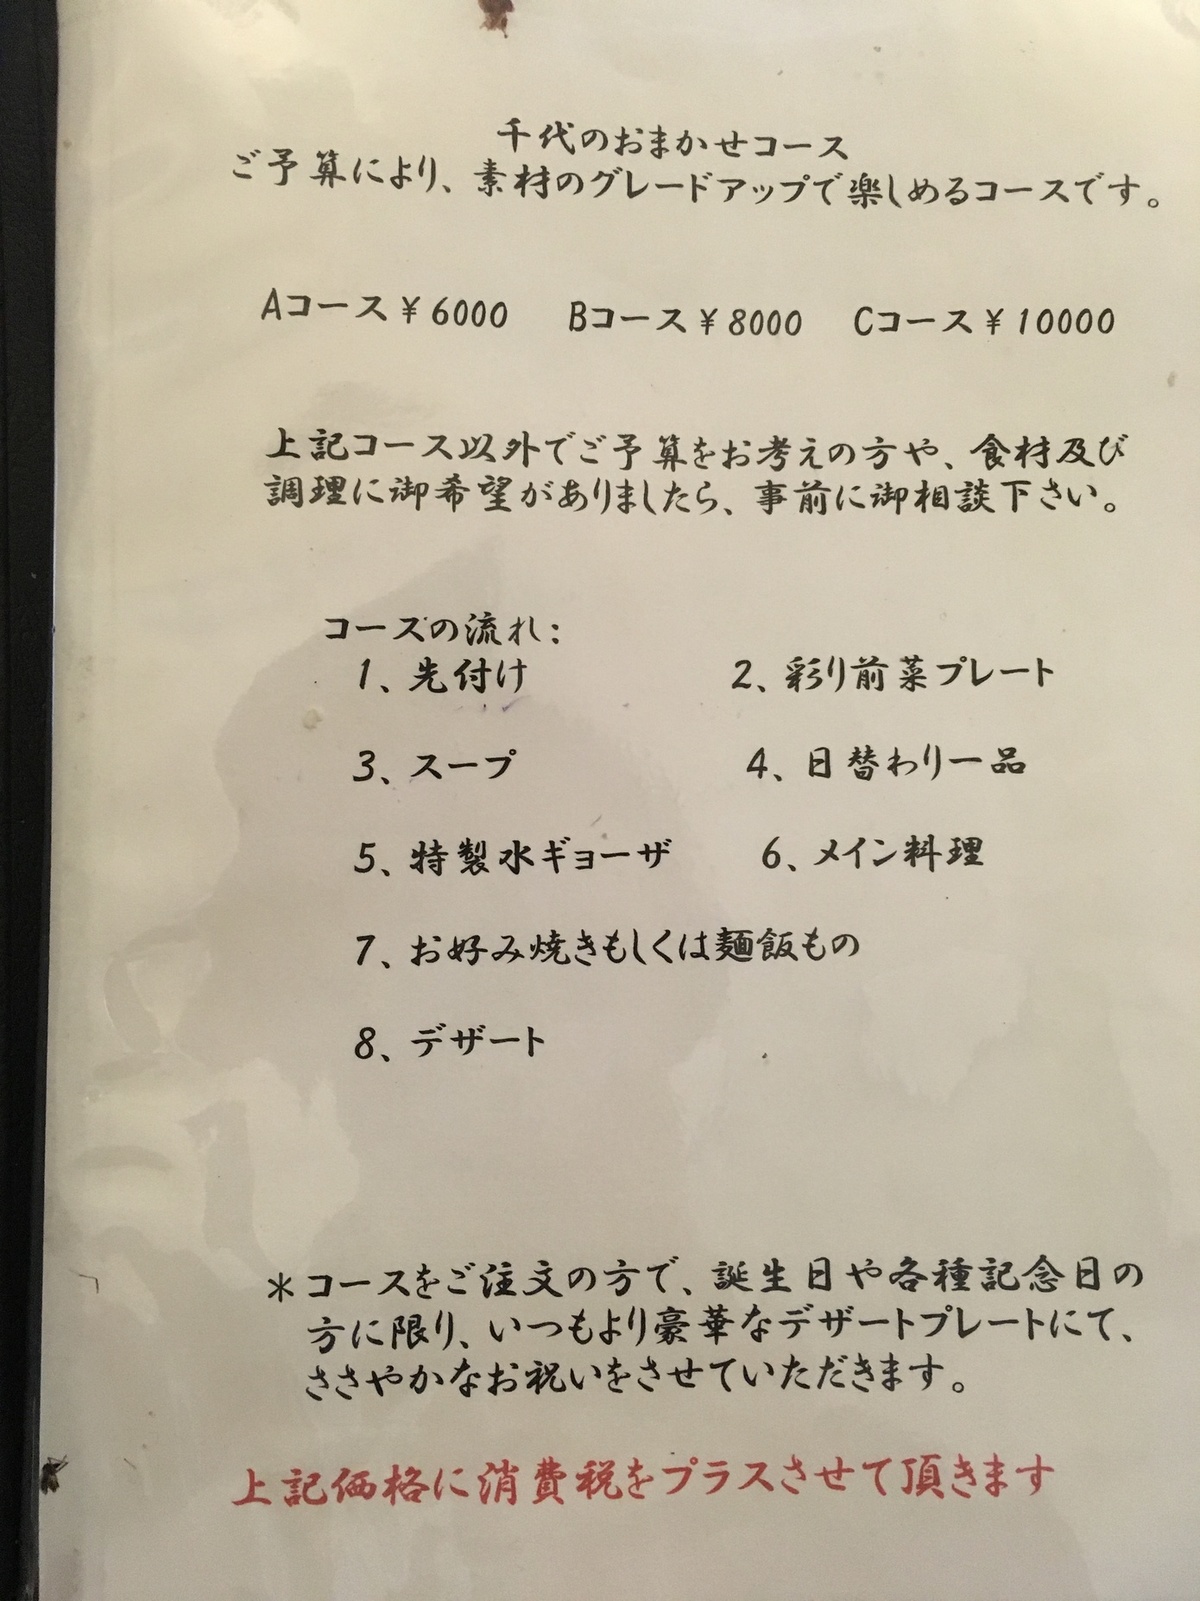 千代のおまかせコース
ご予算により、素材のグレードアップで楽しめるコースです。
Aコース¥6000 Bコース¥8000 Cコース¥10000
上記コース以外でご予算をお考えの方や、食材及び
調理に御希望がありましたら、事前に御相談下さい。
コースの流れ:
1、先付け 2、彩り前菜プレート
3、スープ 4、日替わり一品
5、特製水ギョーザ 6、メイン料理
7、お好み焼きもしくは麺飯もの
8、デザート
*コースをご注文の方で、誕生日や各種記念日の
方に限り、いつもより豪華なデザートプレートにて、
ささやかなお祝いをさせていただきます。
上記価格に消費税をプラスさせて頂きます